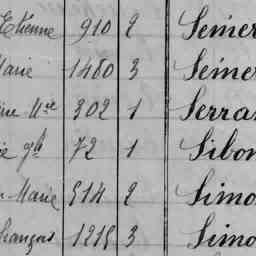 Etienne 910 2 Semer
Marie 1480 3 Semer
302 1 Serra
72 1 Sibon
Marie 514 2 Simo
François 1215 3 Simo